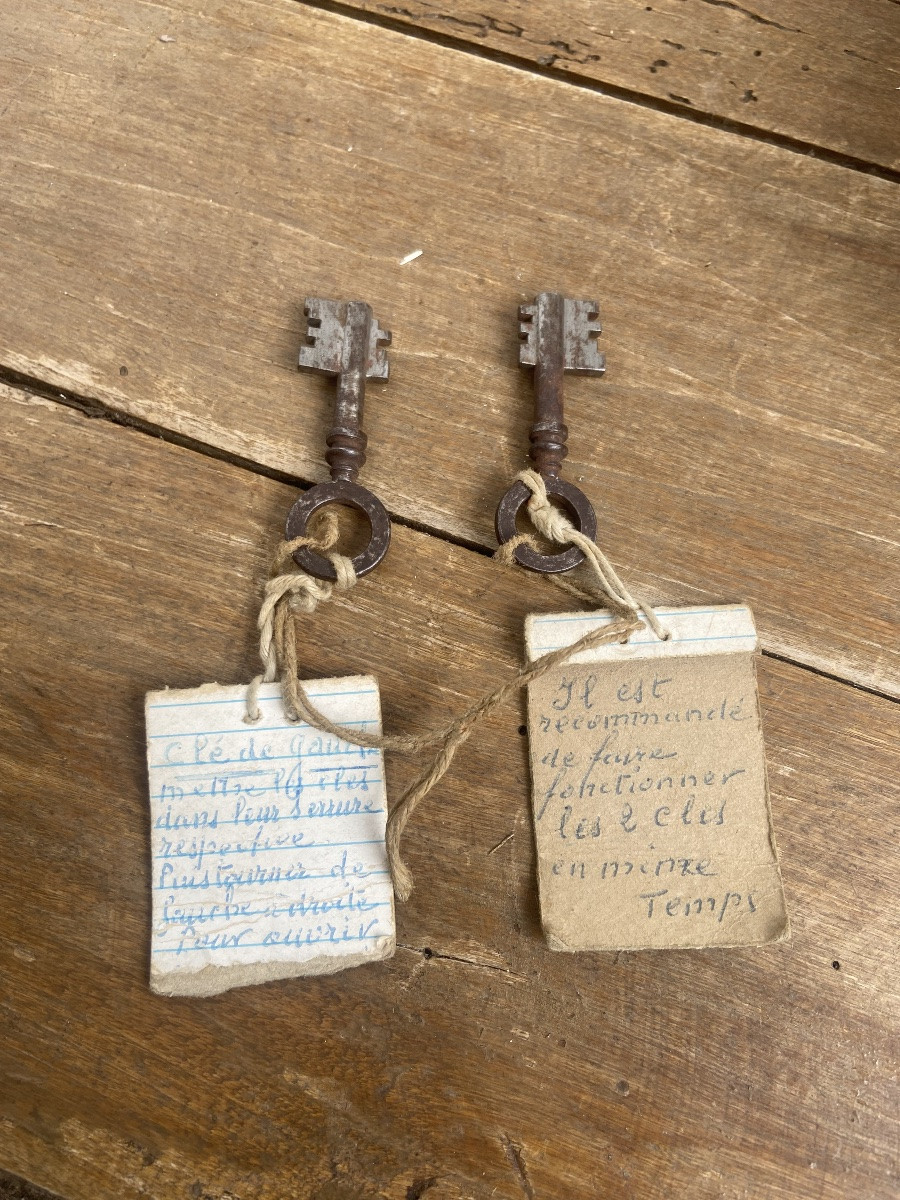 Clé de Gauche
mettre les cles
dans leur serrure
respective
Puis tourner de
Gauche a droite
Pour ouvrir
Il est
recommandé
de faire
fonctionner
les 2 Clés
en mime
Temps